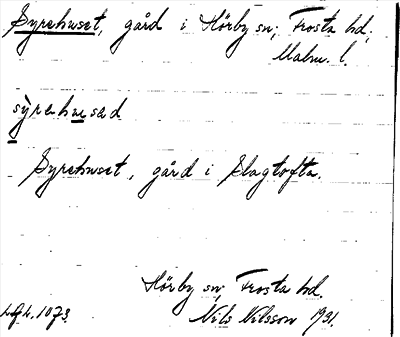 Syrehuset, gård i Hörby sn; Frosta hd;
Malm. l.
sỳrehusad
Syrehuset, gård i Slagtofta.
Hörby sn, Frosta hd.
Nils Nilsson 1931.